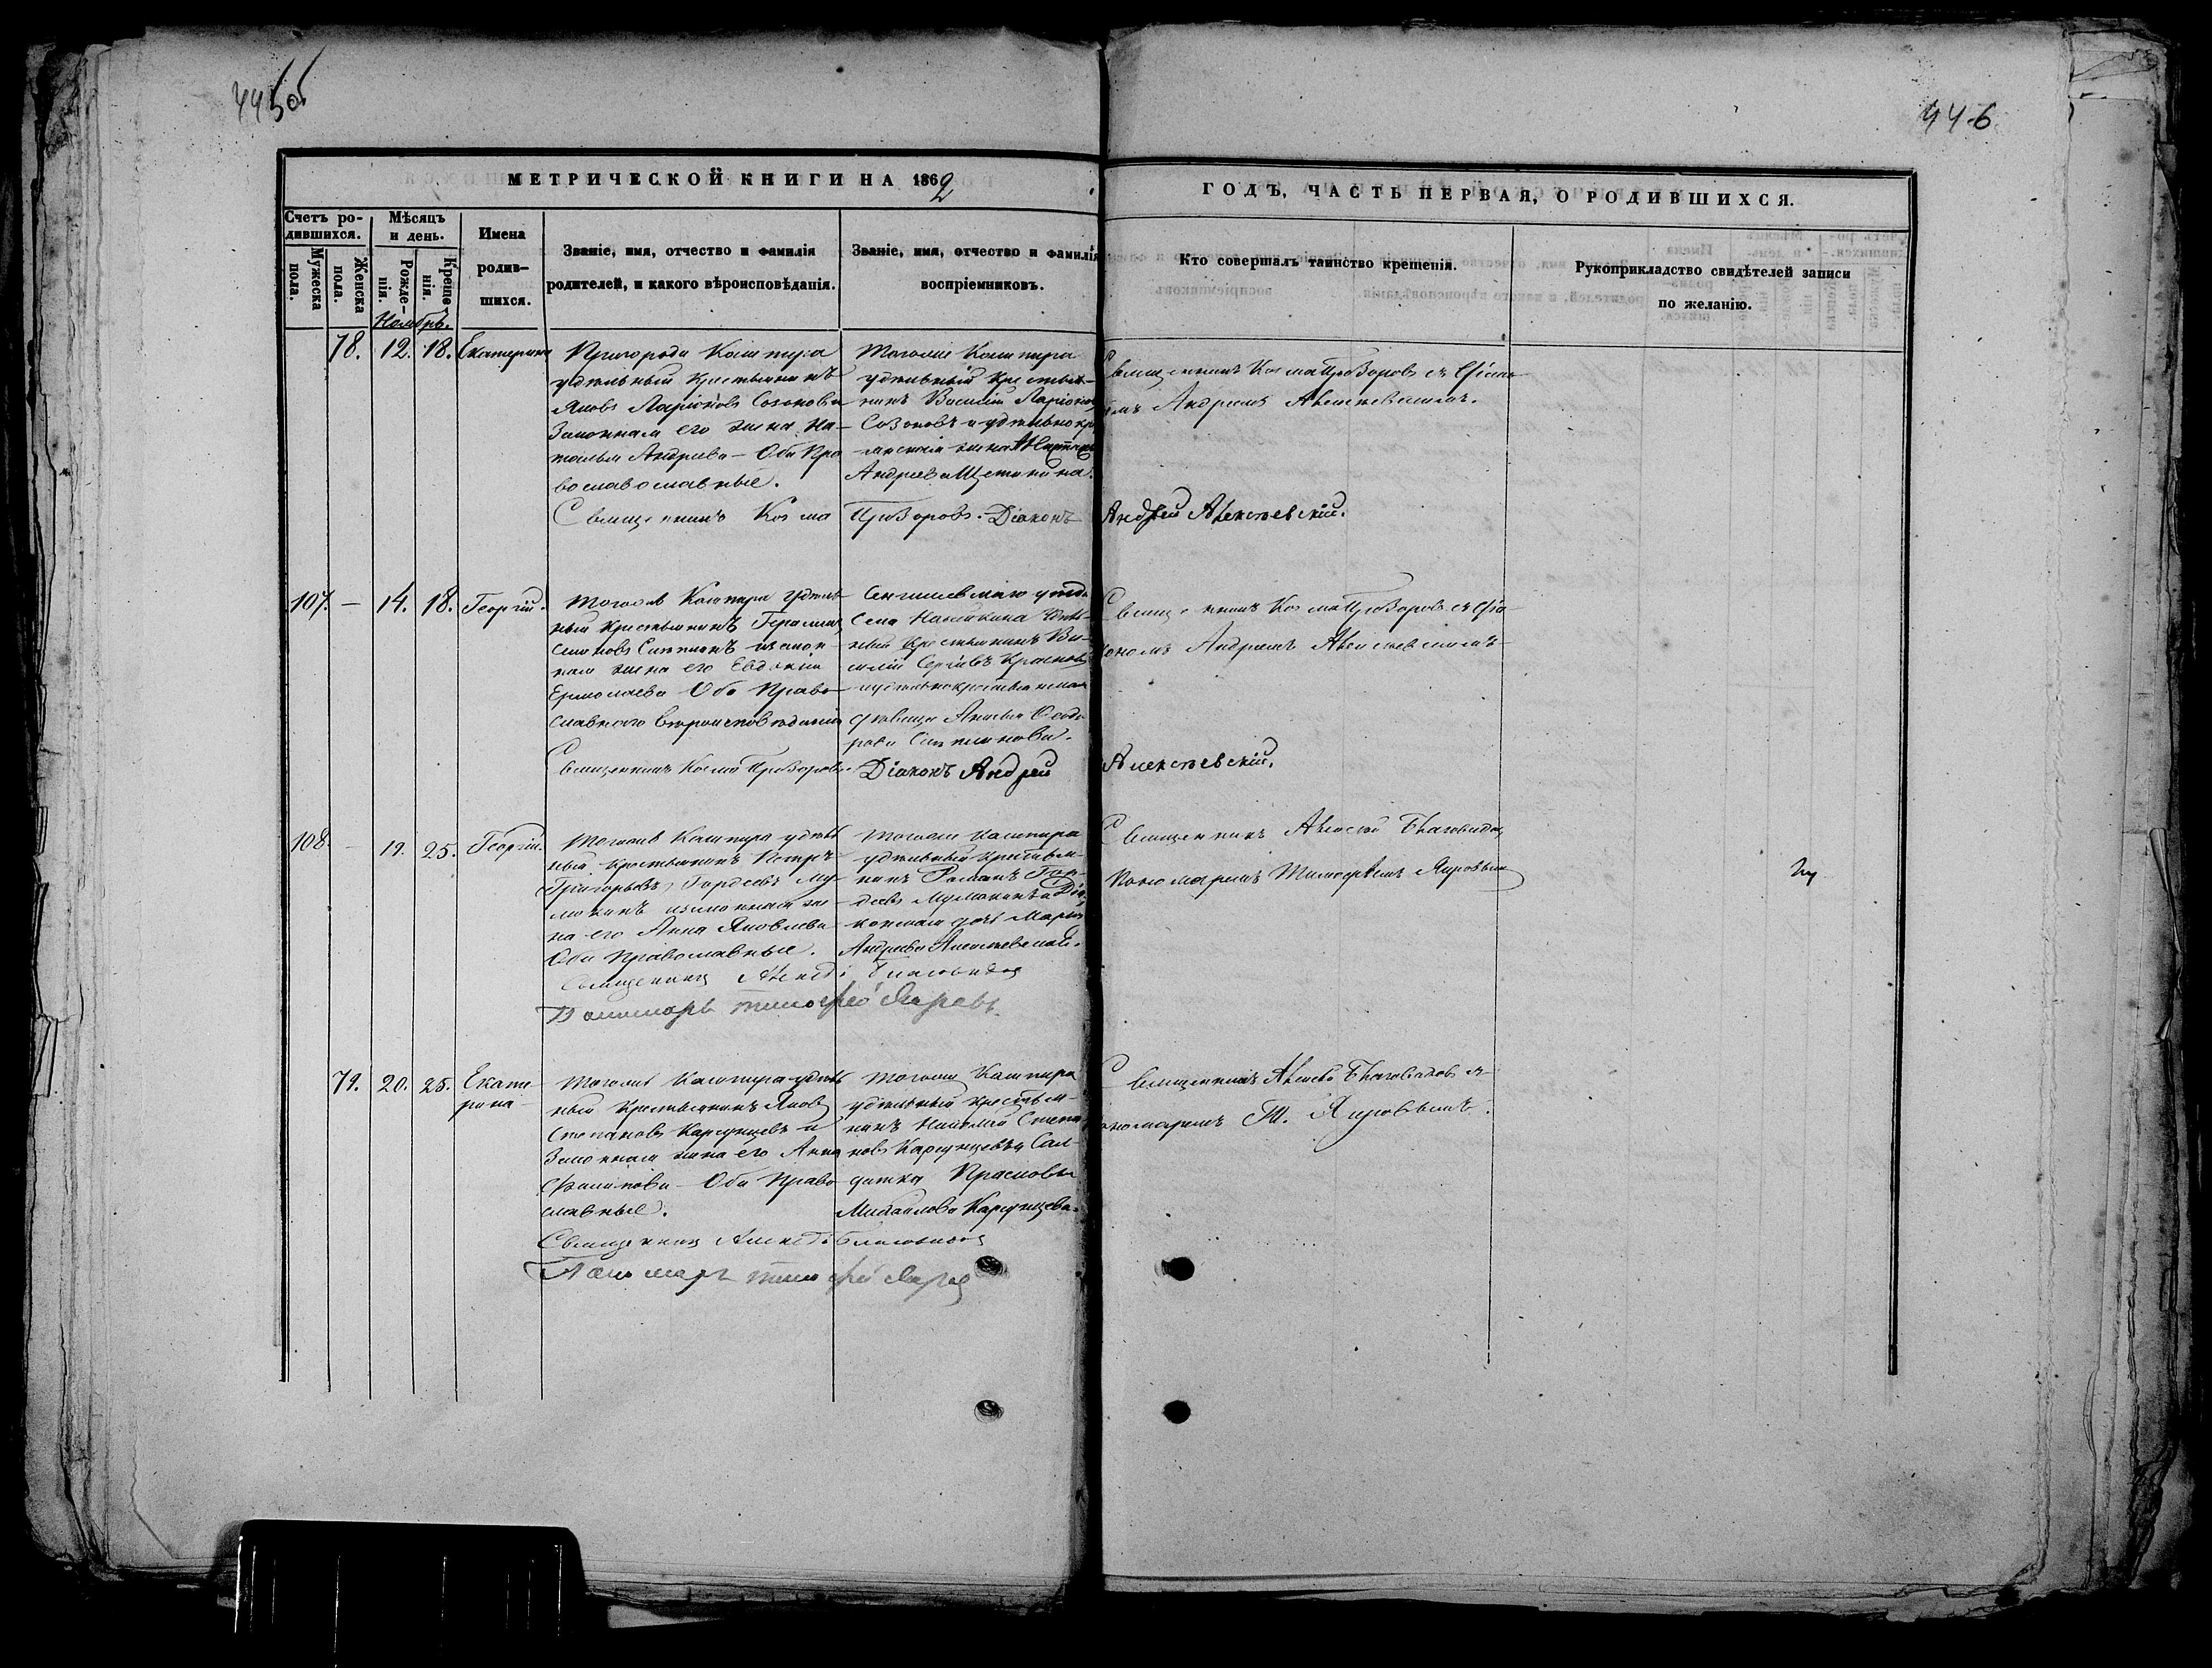 445об
446
МЕТРИЧЕСКОЙ КНИГИ НА 1862
ГОДЪ, ЧАСТЬ ПЕРВАЯ, О РОДИВШИХСЯ.
Счетъ ро-
дившихся.
Мужеска
пола.
Женска
пола.
Мѣсяцъ
и день.
Рожде-
нія.
Креще-
нія.
Имена
родив-
шихся.
Званіе, имя, отчество и фамилія
родителей, и какого вѣроисповѣданія.
Званіе, имя, отчество и фамилія
воспріемниковъ.
Кто совершалъ таинство крещенія.
Рукоприкладство свидѣтелей записи
по желанію.
Ноябрь.
78. 12. 18. Екатерина
Пригорода Кашпира
удѣльный крестьянинъ
Яковъ Ларіоновъ Созоновъ
Законная его жена На-
талья Андреева – Оба Пра
вославославные.
Тогоже Кашпира
удѣльный крестья-
нинъ Василій Ларіоновъ
Созоновъ и удѣльнокре
жена
Андреева Щетинина.
Священникъ Косма Прозоровъ съ Діако
номъ Андреемъ Алексѣевскимъ.
Священникъ Косма Прозоровъ. Діаконъ Андрей Алексѣевскій.
107. – 14. 18. Георгій.
Тогоже Кашпира удѣль
ный крестьянинъ Герасимъ
законная
жена его Евдокія
Ермолаева Оба Право
славнаго вѣроисповѣданія
Сенгилеевскаго уѣзда
Села удѣль
ный крестьянинъ Ва-
силій Сергѣевъ Красновъ
и удѣльнокрестьянская
дѣвица Ѳеодо
рова
Священникъ Косма Прозоровъ съ Діа
кономъ Андреемъ Алексѣевскимъ
Священникъ Косма Прозоровъ. Діаконъ Андрей Алексѣевскій.
108. – 19. 25. Георгій.
Тогоже Кашпира удѣль
ный крестьянинъ Петръ
Григорьевъ Гордѣевъ Му-
законная же-
на его Анна Яковлева
Оба Православные.
Тогоже Кашпира
удѣльный крестья-
нинъ Романъ Гор-
дѣевъ и Діа
конская дочь Марья
Андреева Алексѣевская.
Священникъ Алексѣй Благовидов
Пономаремъ Тимофѣемъ Яировымъ
Священникъ Алексѣй Благовидов
Пономарь Тимофей Яировъ.
79. 20. 25. Екате
рина
Тогоже Кашпира удѣль
ный крестьянинъ Яковъ
Степановъ Карсунцевъ и
Законная жена его Анна
Филипова – Оба Право
славные.
Тогоже Кашпира
удѣльный крестья-
нинъ Николай Степа
новъ Карсунцевъ и Сол-
датка Прасковья
Михайлова Карсунцева.
Священникъ Алексѣй Благовидовъ съ
пономаремъ Т. Яировымъ.
Священникъ Алексѣй Благовидов
Пономарь Тимофей Яиров